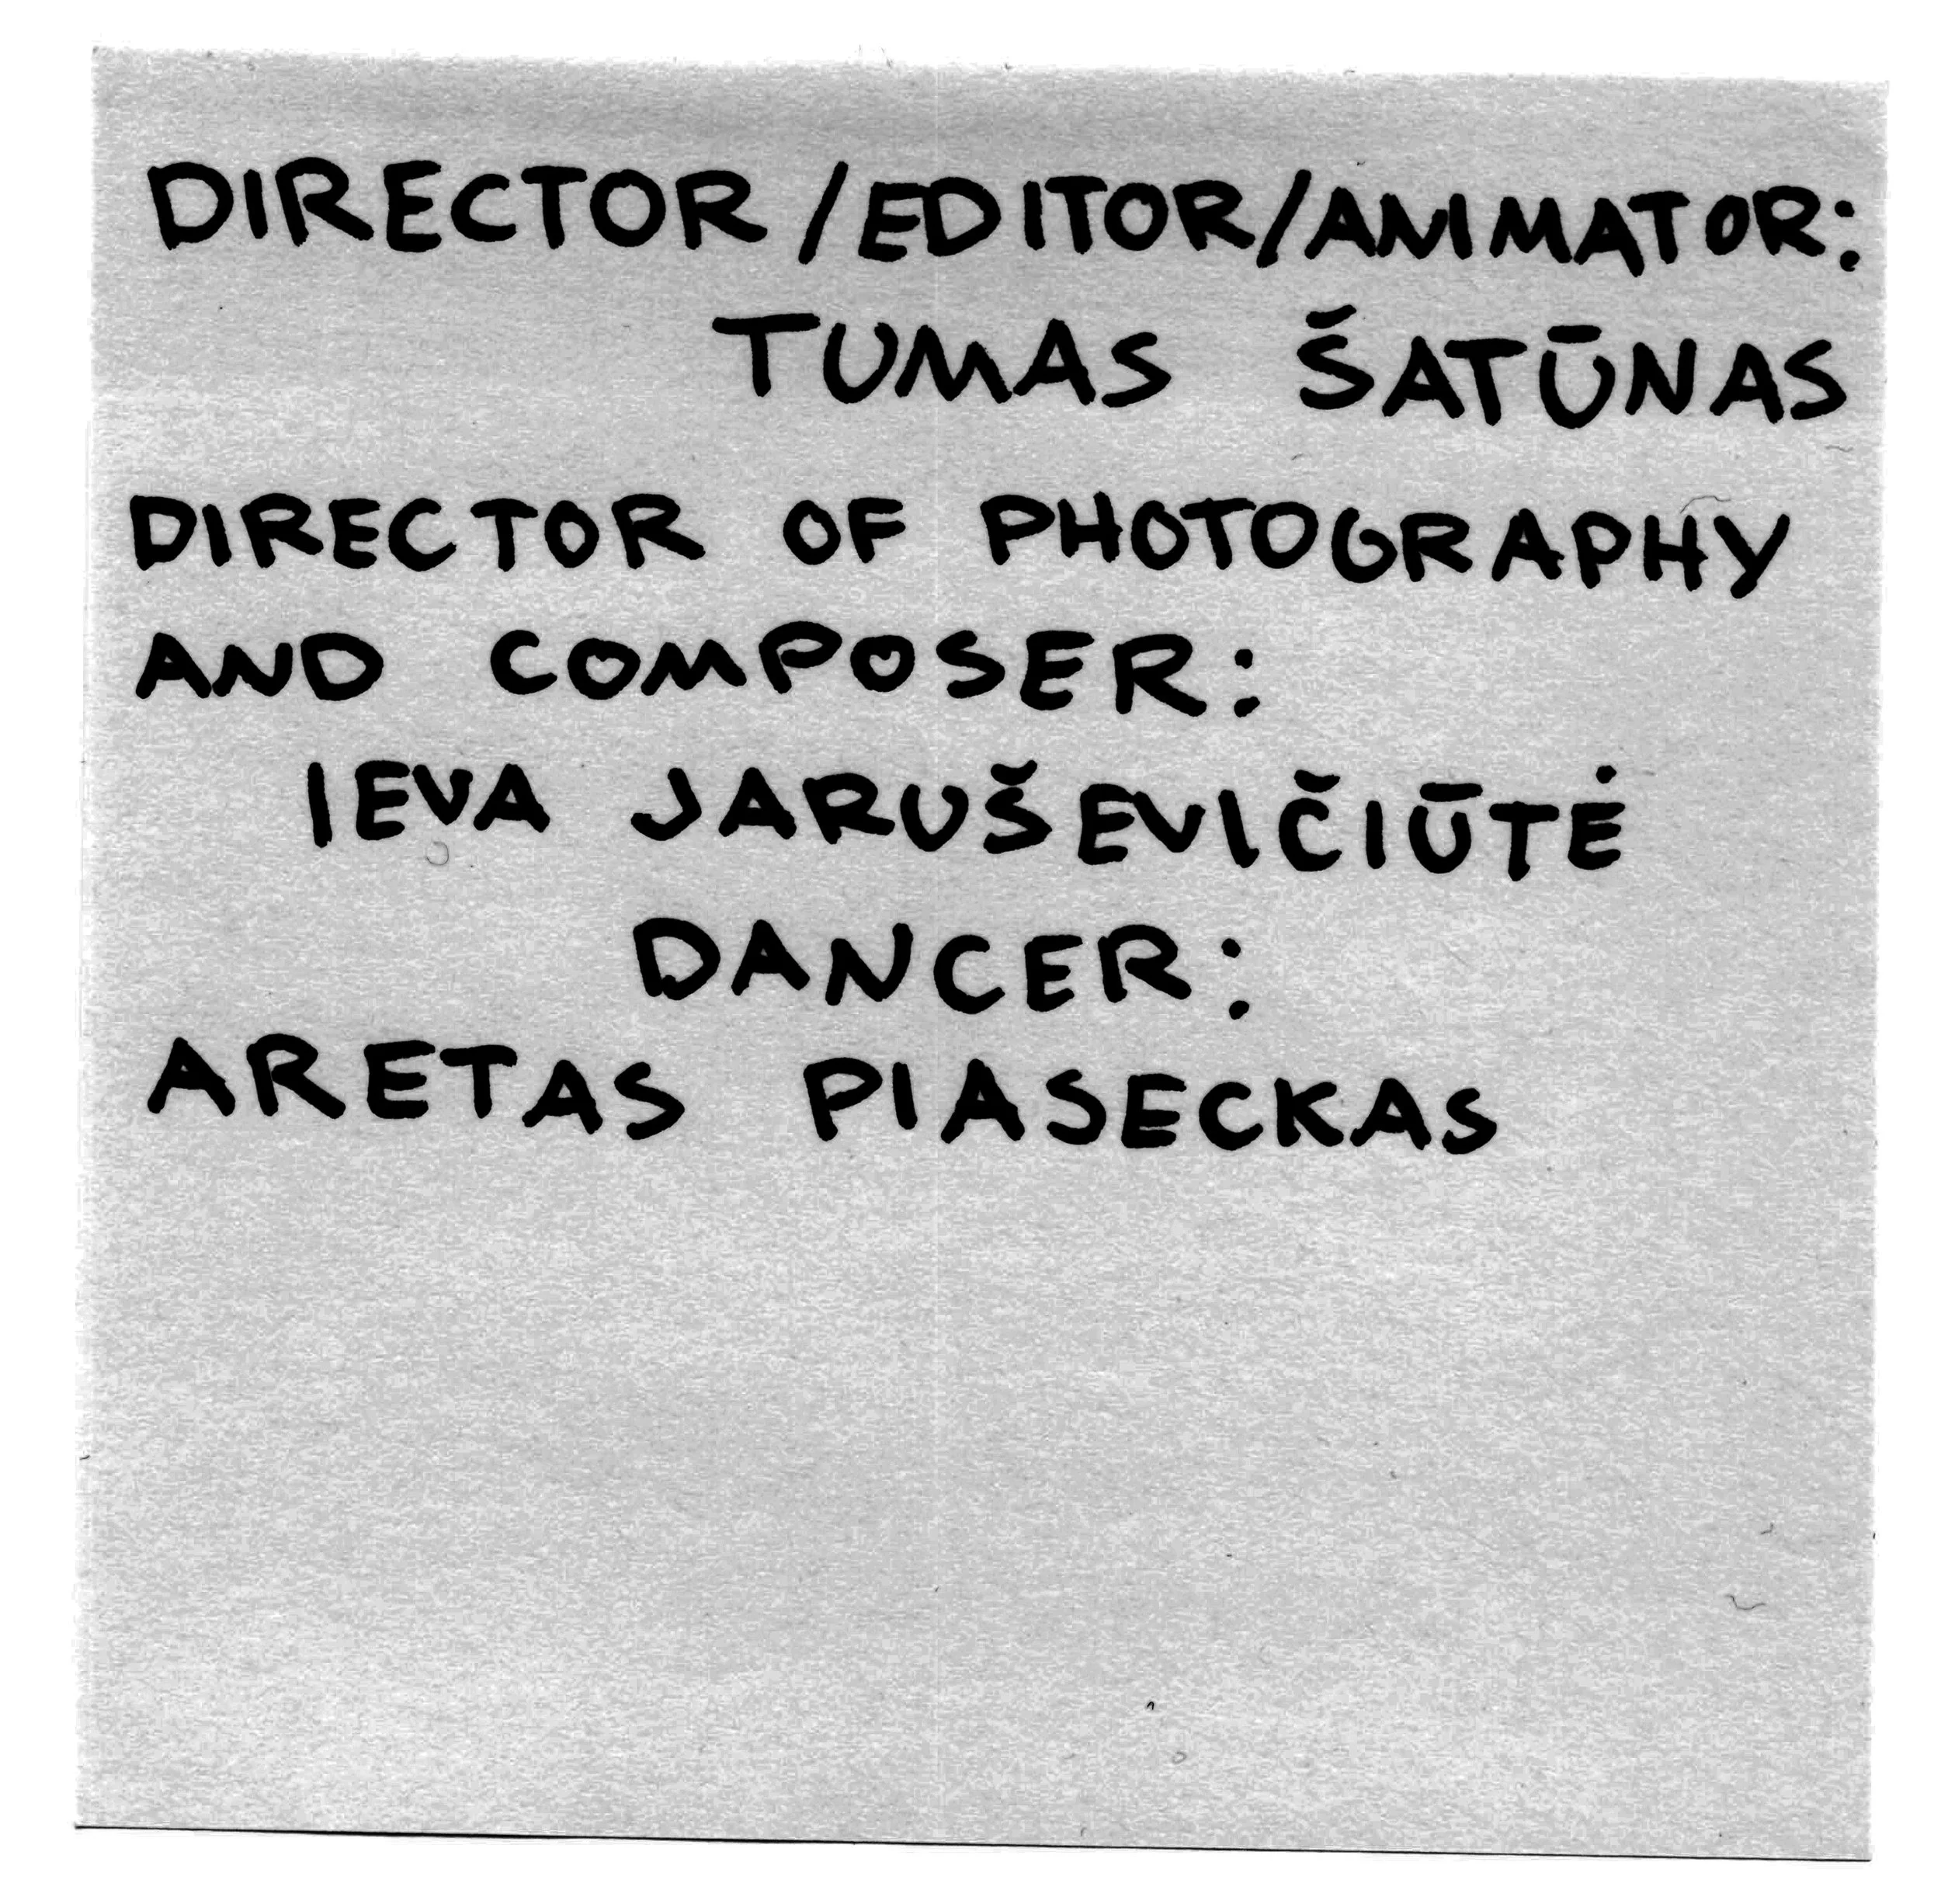 DIRECTOR/EDITOR/ANIMATOR:
TUMAS ŠATŪNAS
DIRECTOR OF PHOTOGRAPHY
AND COMPOSER:
IEVA JARUŠEVIČIŪTĖ
DANCER:
ARETAS PIASECKAS